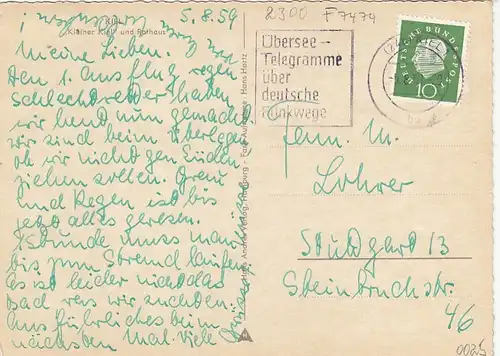 5.8.59
2300 F7474
Kiel
Kleiner Kiel und Rathaus
Meine Lieben.
Den 1. Ausflug wegen
Schlechtwetter haben
wir nun gemacht
wir sind beim Überlegen
ob wir nicht gen Süden
ziehen sollen. Grau
und Regen ist bis
jetzt alles gewesen.
1 Stunde muss man
bis zum Strand laufen
es ist leider nicht das
Bad was wir suchten
Ausführliches beim
nächsten Mal. Viele
Übersee-
Telegramme
über
deutsche
Funkwege
DEUTSCHE BUNDESPOST
10
Fam. M.
Lohrer
Stuttgart 13
Steinbruchstr.
46
0025